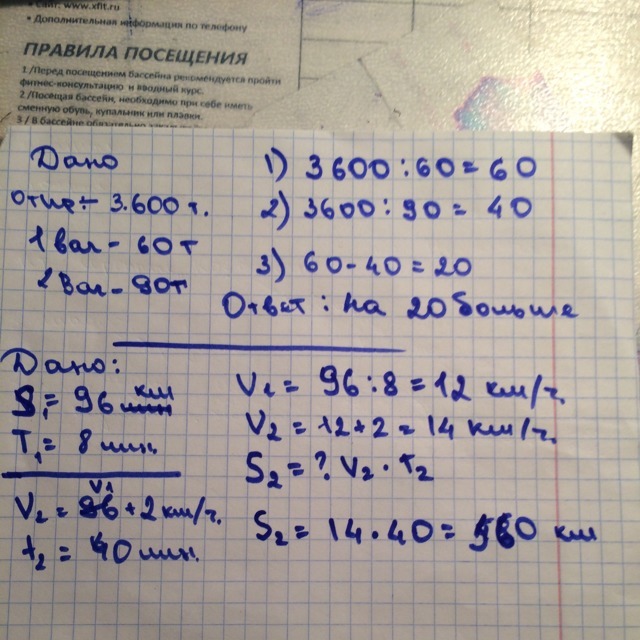 • Сайт: www.xfit.ru
• Дополнительная информация по телефону
ПРАВИЛА ПОСЕЩЕНИЯ
1 /Перед посещением бассейна рекомендуется пройти
фитнес-консультацию и вводный курс.
2 /Посещая бассейн, необходимо при себе иметь
сменную обувь, купальник или плавки.
3 / В бассейне обязательно
Дано
3.600 т.
1 ваг - 60 т
1 ваг - 90т
1) 3600 : 60 = 60
2) 3600 : 90 = 40
3) 60 - 40 = 20
Ответ: на 20 больше
Дано:
S₁ = 96 км
T₁ = 8 мин.
V₂ = V₁ + 2 км/ч.
t₂ = 40 мин.
V₁ = 96 : 8 = 12 км/ч.
V₂ = 12 + 2 = 14 км/ч.
S₂ = ? V₂ · t₂
S₂ = 14 · 40 = 560 км